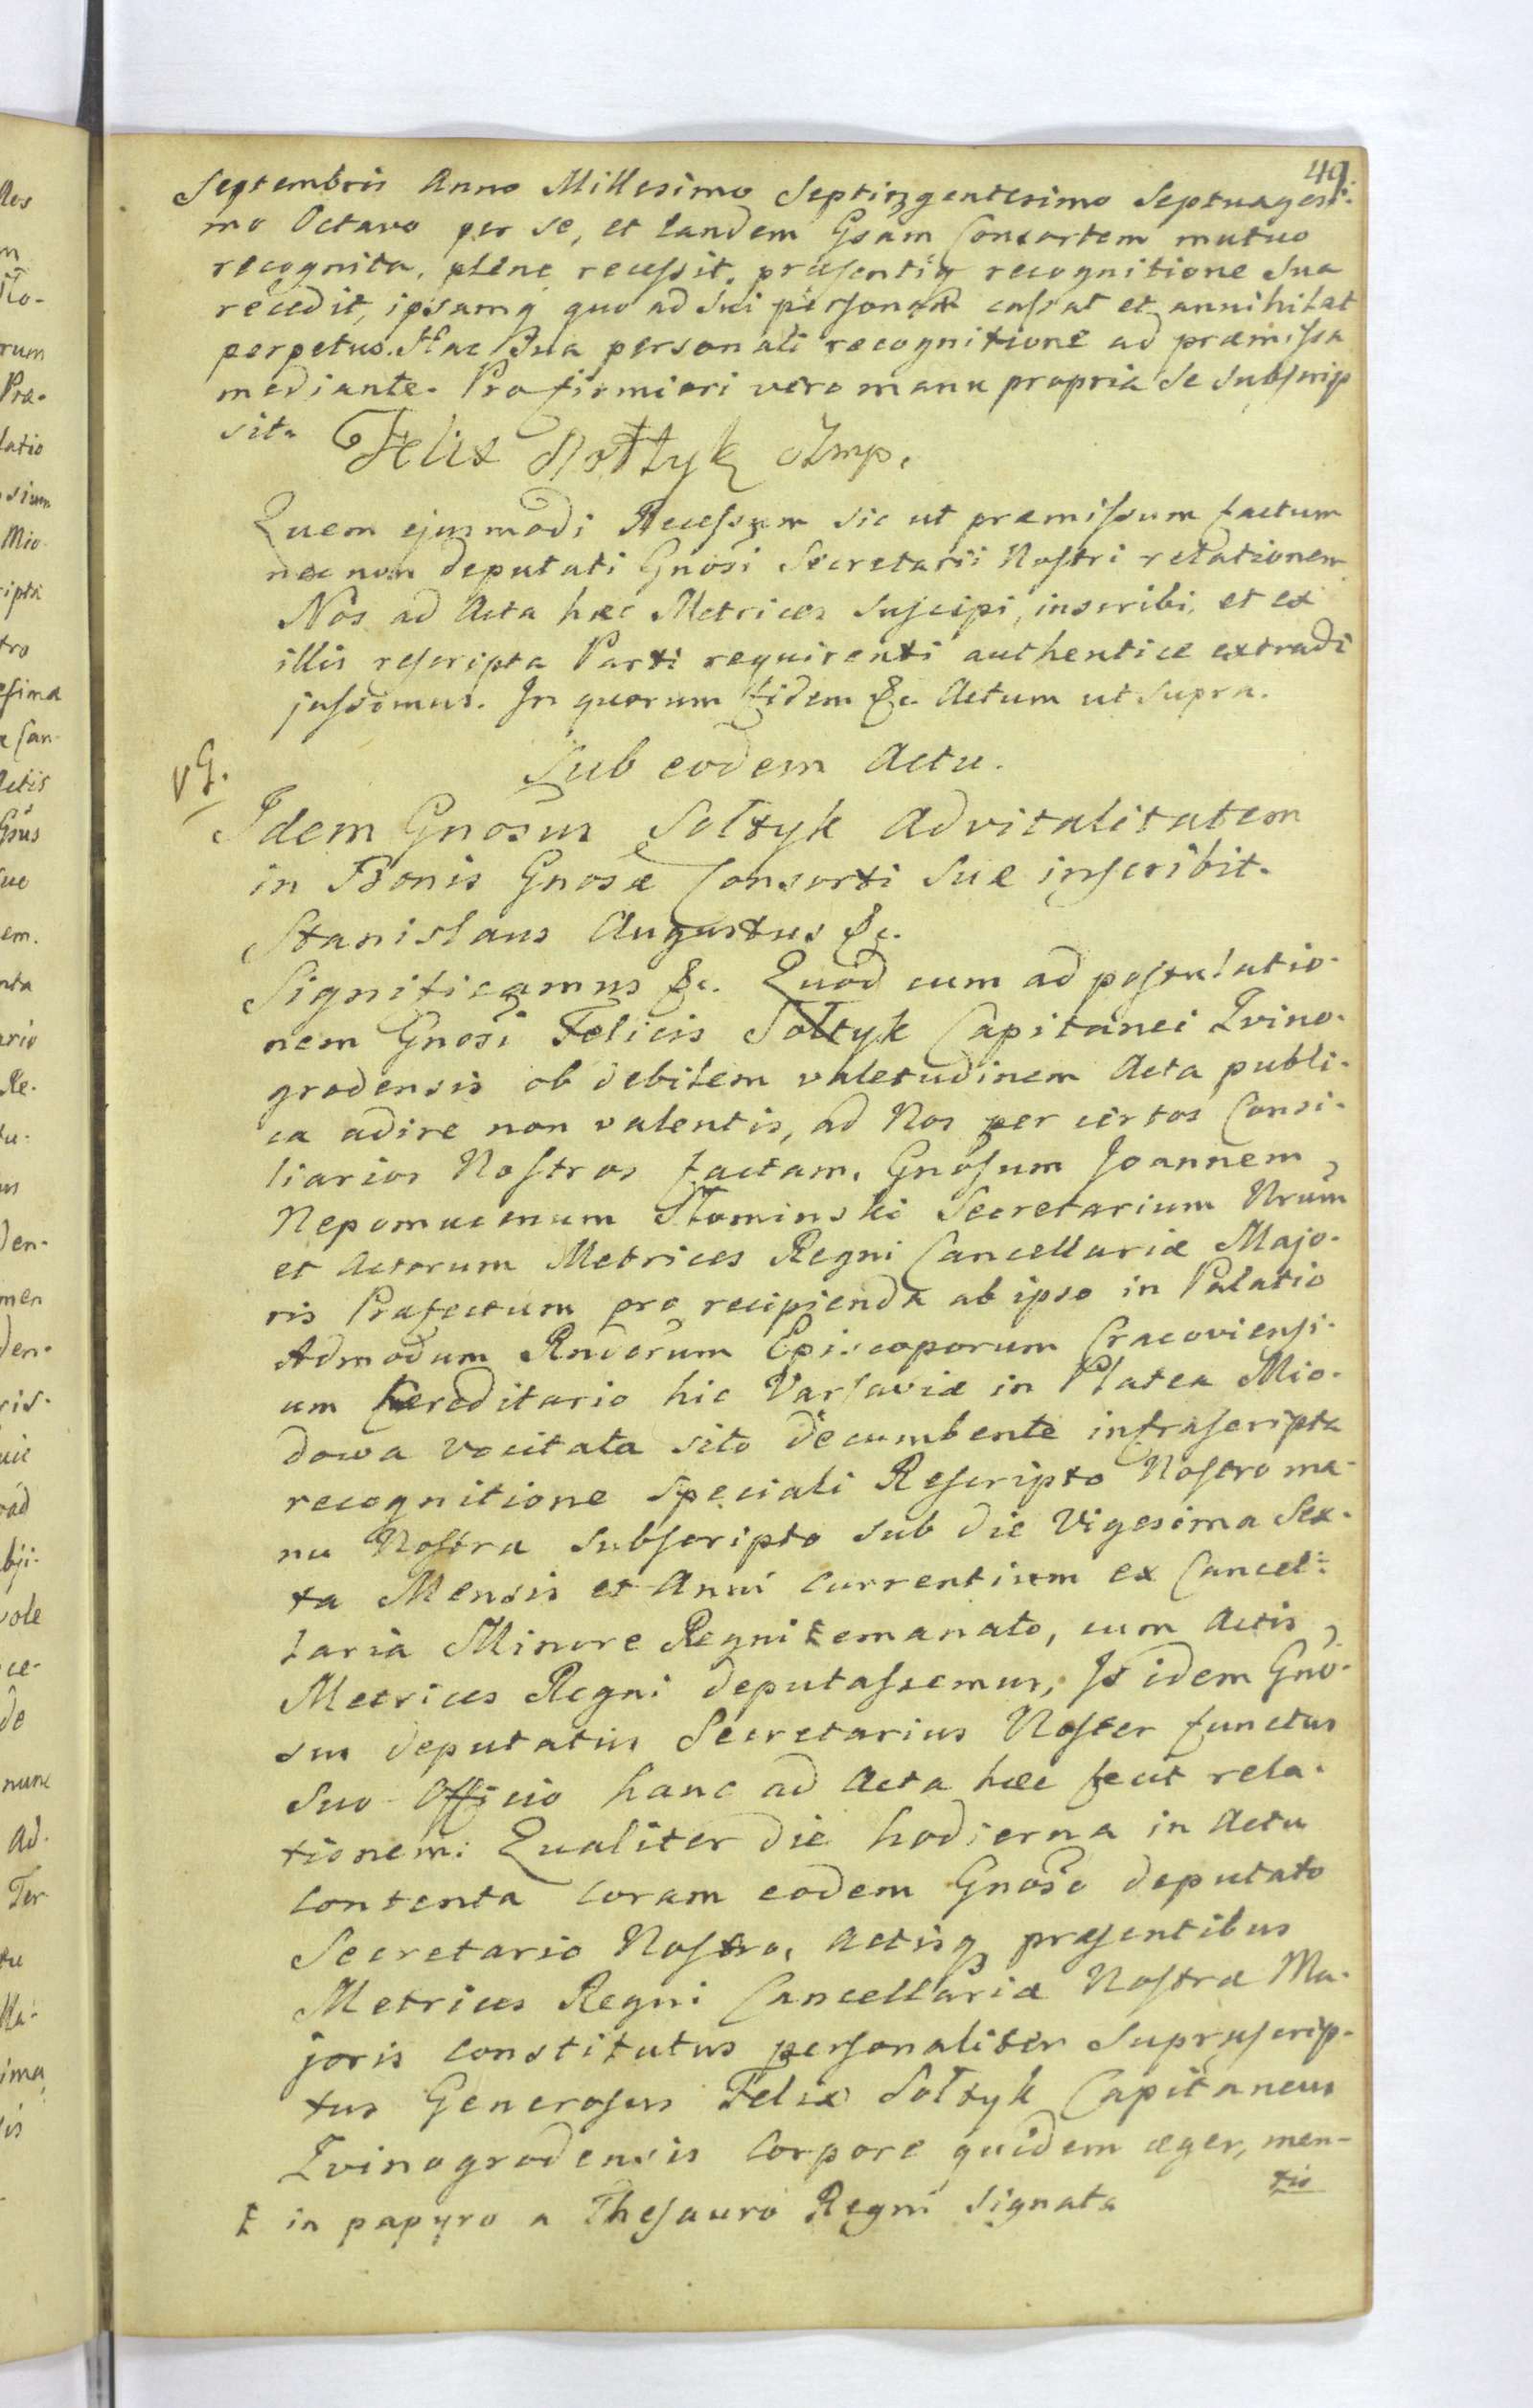 49.
Septembris Anno Millesimo Septingentesimo Septuagesi:
mo Octavo per se, et eandem Gsam Consortem mutuo
recognita, plene recessit, præsentiq recognitione Sua
recedit, ipsamq quo ad Sui personam cassat et annihilat
perpetuo. Hac Sua personali recognitione ad præmissa
mediante. Pro firmiori vero manu propria Se Subscrip
sit. Felix Sołtyk Imp.
Quem ejusmodi Recessum sic ut præmissum factum
nec non deputati Gnosi Secretarii Nostri relationem
Nos ad Acta hæc Metrices suscipi, inscribi, et ex
illis rescripta Parti requirenti authentice extradi
jussimus. In quorum fidem &c. Actum ut Supra.
Sub eodem Actu.
VG.
Idem Gnosus Sołtyk Advitalitatem
in Bonis Gnosæ Consorti Suæ inscribit.
Stanislaus Augustus &c.
Significamus &c. Quod cum ad postulatio-
nem Gnosi Felicis Sołtyk Capitanei Zvino-
grodensis ob debilem valetudinem Acta publi-
ca adire non valentis, ad Nos per certos Consi-
liarios Nostros factam, Gnosum Joannem
Nepomucenum Słominski Secretarium Nrum
et Actorum Metrices Regni Cancellariæ Majo-
ris Præfectum pro recipienda ab ipso in Palatio
Admodum Rndorum Episcoporum Cracoviensi-
um hæreditario hic Varsaviæ in Platea Mio-
dowa vocitata sito decumbente infrascripta
recognitione speciali Rescripto Nostro ma-
nu Nostra Subscripto sub die Vigesima Sex-
ta Mensis et Anni currentium ex Cancel-
laria Minore Regni ŧ emanato, cum Actis
Metrices Regni deputassemus, Is idem Gno-
sus deputatus Secretarius Noster functus
Suo Officio hanc ad Acta hæc fecit rela-
tionem: Qualiter die hodierna in Actu
contenta coram eodem Gnoso deputato
Secretario Nostro, Actisq præsentibus
Metrices Regni Cancellariæ Nostræ Ma-
joris constitutus personaliter Suprascrip-
tus Generosus Felix Sołtyk Capitaneus
Zvinogrodensis Corpore quidem æger, men-
tis
ŧ in papyro a Thesauro Regni Signata